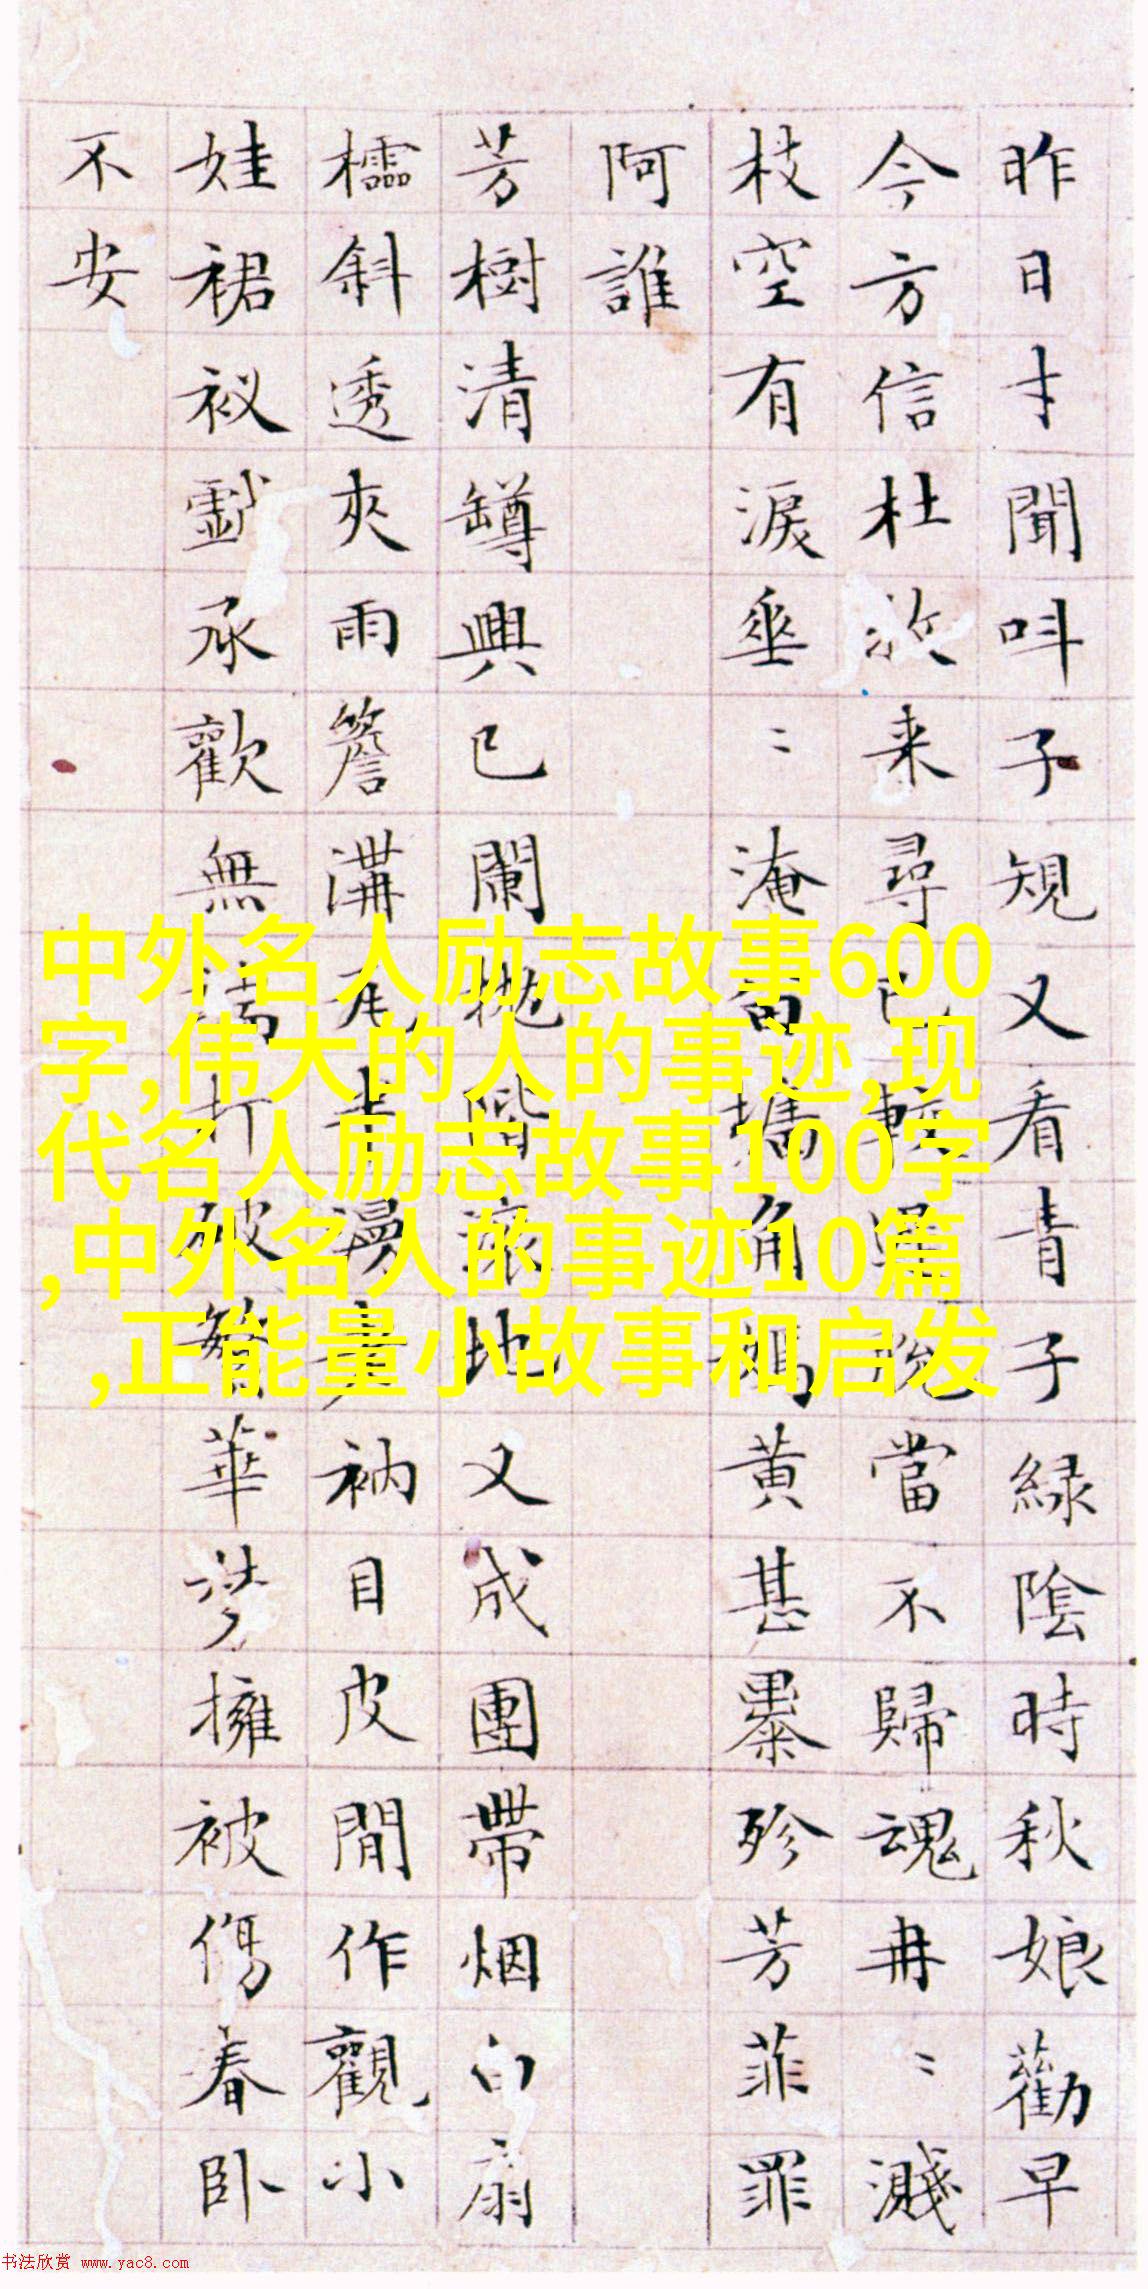 昨日才聞呌子規又看青子緑陰時秋娘勸早
今方信杜 来尋 當不歸魂冉〻濺
枝空有淚垂〻淹留 角 黄甚𣊻殄芳菲罪
阿誰
芳樹清罇興已闌 階滚地又成團帶烟白扇
櫺斜透夾雨簷溝 青漫 衲目皮間作觀小
娃裙衩 承歡無 打破 華 擁被傷春卧
不安
中外名人励志故事600
字,伟大的人的事迹,现
代名人励志故事100字
,中外名人的事迹10篇
,正能量小故事和启发
书法欣赏 www.yac8.com